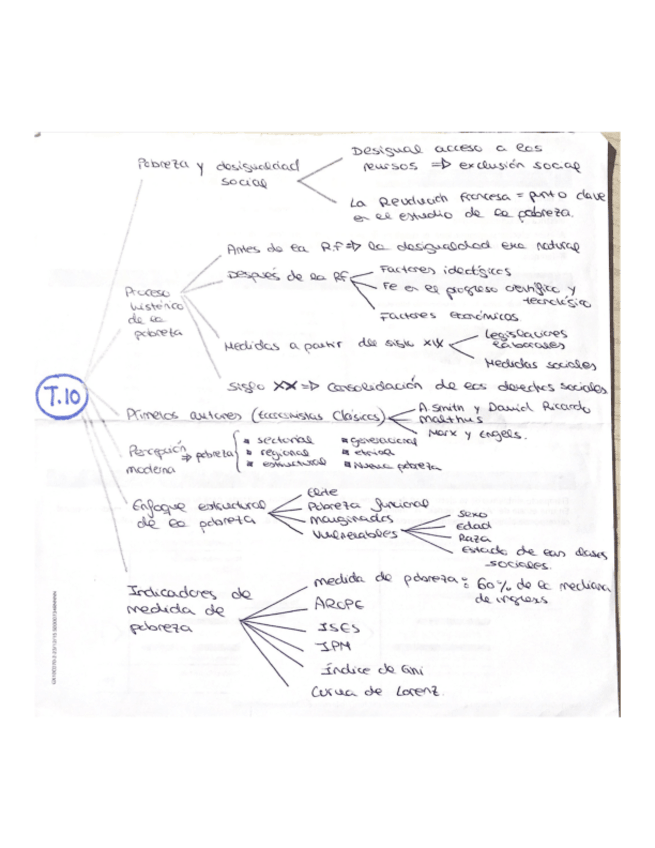 T.10
Pobreza y desigualdad
social
Desigual acceso a los
recursos => exclusión social
La Revolución Francesa = punto clave
en el estudio de la pobreza.
Proceso
histórico
de la
pobreza
Antes de la R.F => la desigualdad era natural
Después de la RF
Factores ideológicos
Fe en el progreso científico y
tecnológico
Factores económicos
Medidas a partir del siglo XIX
Legislaciones
laborales
Medidas sociales
Siglo XX => Consolidación de los derechos sociales
Primeros autores (Economistas Clásicos)
A. Smith y Daniel Ricardo
Malthus
Marx y Engels.
Percepción
moderna
=> pobreza
sectorial
regional
estructural
generacional
étnica
Nueva pobreza
Enfoque estructural
de la pobreza
Élite
Pobreza funcional
Marginados
Vulnerables
Sexo
Edad
Raza
Estado de las clases
sociales.
Indicadores de
medida de
pobreza
medida de pobreza = 60% de la mediana
de ingresos
AROPE
ISES
IPM
Índice de Gini
Curva de Lorenz.